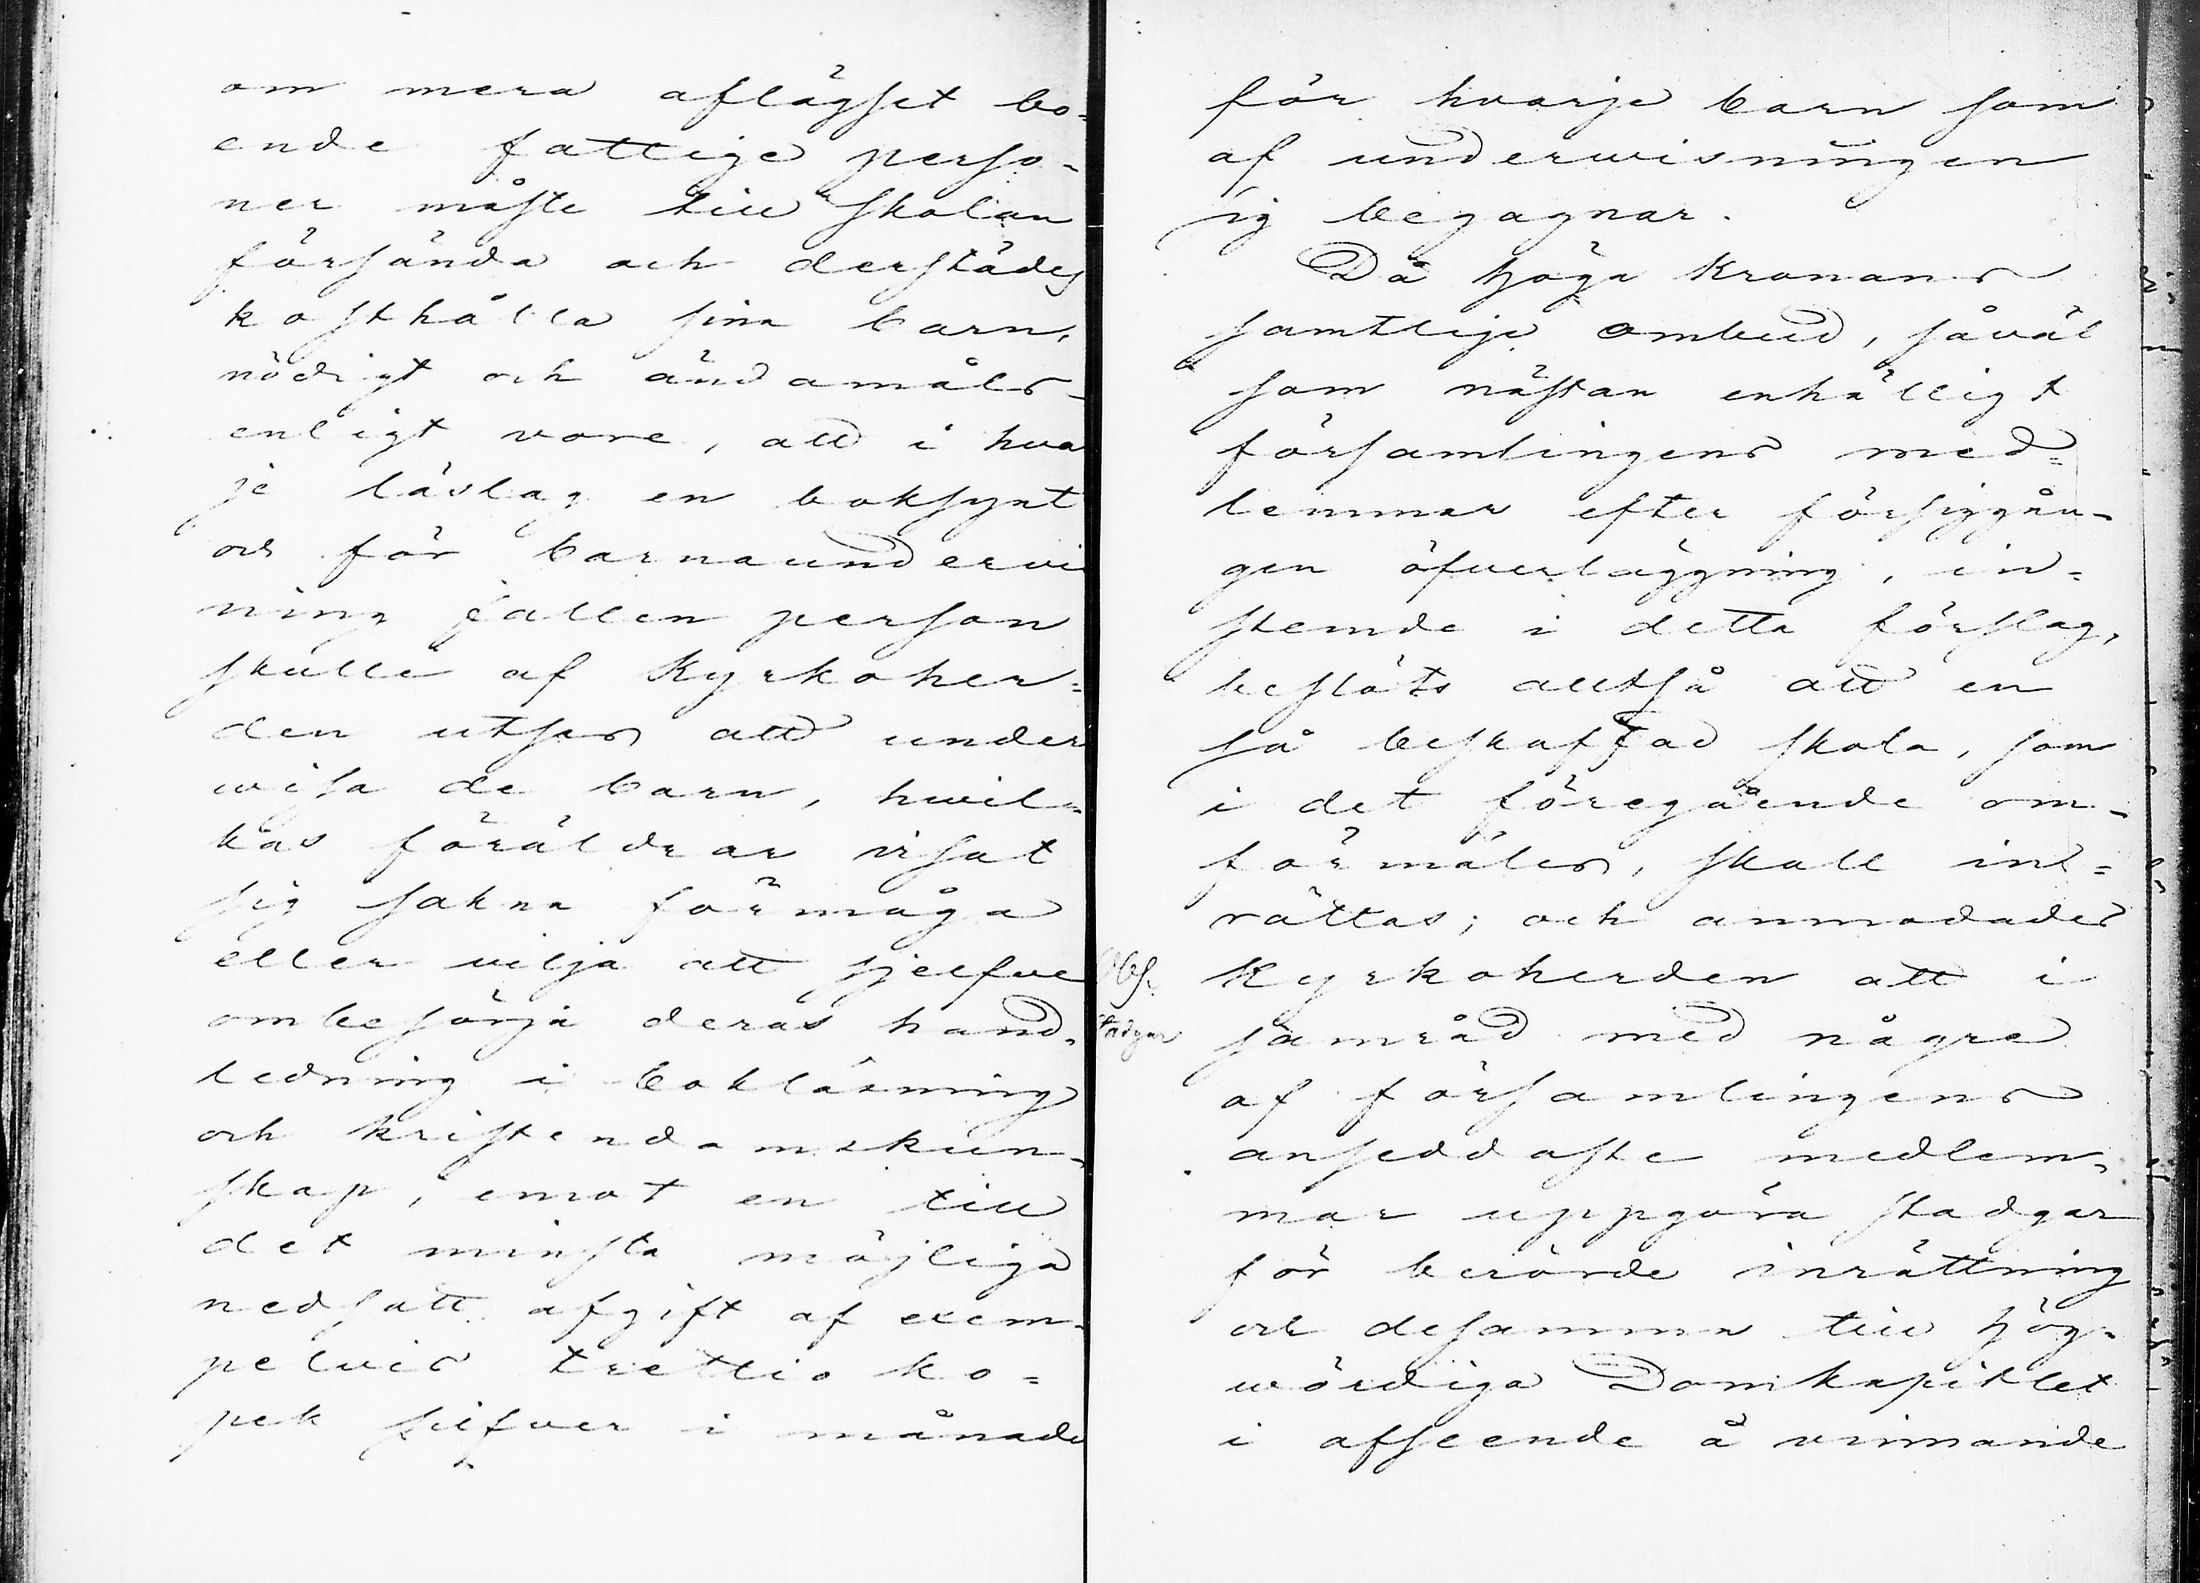 om mera aflägset bo=
ende fattige perso-
ner måste till skolan
försända och derstädes
kosthålla sina barn,
nödigt och ändamåls-
enligt vore, att i hvar
je läslag en boksynt
och för barnaundervis
ning fallen person
skulle af Kyrkoher=
den utses att under
wisa de barn, hwil-
kas föräldrar visat
sig sakna förmåga
eller vilja att sjelfve
ombesörja deras hand-
ledning i bokläsning
och kristendomskun-
skap, emot en till
det minsta möjliga
nedsatt afgift af exem-
pelvis trettio ko=
pek silfver i månaden
för hvarje barn som
af underwisningen
sig begagnar.
Då höga Kronans
samtlige ombud, såväl
som nästan enhälligt
församlingens med=
lemmar efter försiggån-
gen öfverläggning, in=
stemde i detta förslag,
beslöts alltså att en
så beskaffad skola, som
i det föregående om-
förmäles, skall in=
rättas; och anmodades
Obs.
Kyrkoherden att i
stadgar
samråd med några
af församlingens
anseddaste medlem-
mar uppgöra stadgar
för berörde inrättning
och desamma till Hög-
wördiga Domkapitlet
i afseende å vinnande